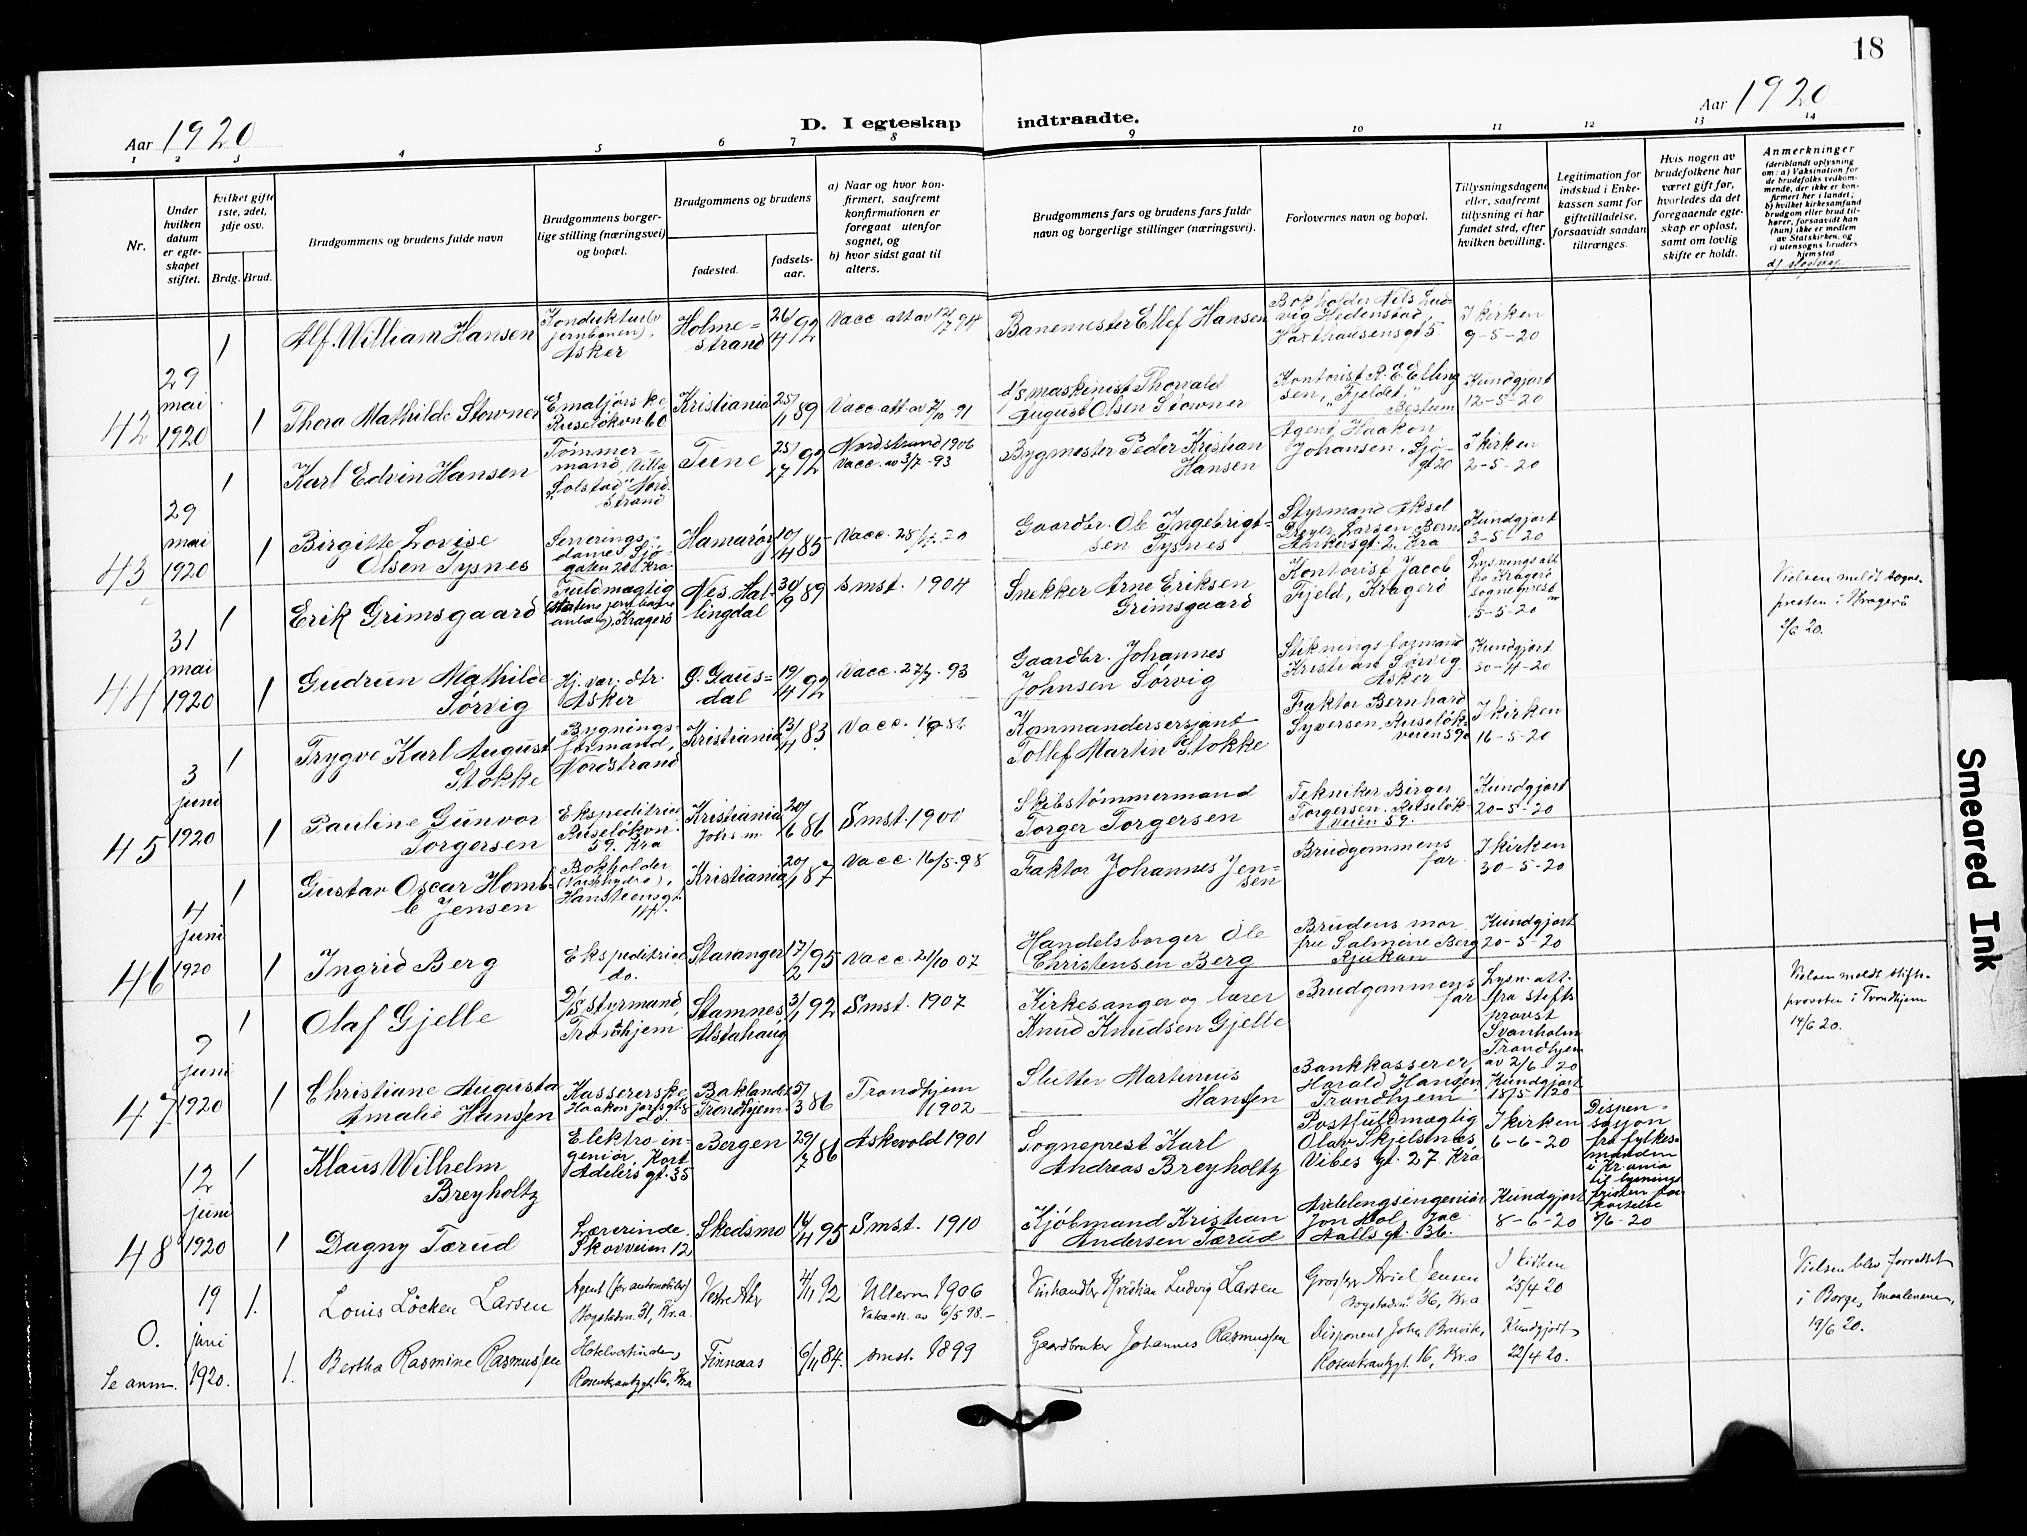 18
Aar 1920
D. I egteskap indtraadte.
Aar 1920
1 2 3 4 5 6 7 8 9 10 11 12 13 14
Nr.
Under
hvilken
datum
er egte-
skapet
stiftet.
hvilket gifte
1ste, 2det,
3dje osv.
Brdg. Brud.
Brudgommens og brudens fulde navn
Brudgommens borger-
lige stilling (næringsvei)
og bopæl.
Brudgommens og brudens
fødested.
fødsels-
aar.
a) Naar og hvor kon-
firmert, saafremt
konfirmationen er
foregaat utenfor
sognet, og
b) hvor sidst gaat til
alters.
Brudgommens fars og brudens fars fulde
navn og borgerlige stillinger (næringsvei).
Forlovernes navn og bopæl.
Tillysningsdagene
eller, saafremt
tillysning ei har
fundet sted, efter
hvilken bevilling.
Legitimation for
indskud i Enke-
kassen samt for
giftetilladelse,
forsaavidt saadan
tiltrænges.
Hvis nogen av
brudefolkene har
været gift før,
hvorledes da det
foregaaende egte-
skap er opløst,
samt om lovlig
skifte er holdt.
Anmerkninger
(deriblandt oplysning
om: a) Vaksination for
de brudefolks vedkom-
mende, der ikke er kon-
firmert her i landet;
b) hvilket kirkesamfund
brudgom eller brud til-
hører, forsaavidt han
(hun) ikke er medlem
av Statskirken, og
c) utensogns bruders
hjemsted
42
29
mai
1920
1
Alf. William Hansen
Konduktør (v
jernbanen),
Asker
Holme=
strand
26/4 92
Vacc. att av 12/7 94
Banemester Ellef Hansen
Bokholder Nils Lud-
vig Hedenstad,
Haxthausensgt 5
I kirken
9-5-20
1
Thora Mathilde Stowner
Emaljørske
Ruseløkvn 60
Kristiania
25/1 89
Vacc. att. av 7/10 91
d/s maskinist Thorvald
August Olsen Stowner
Kontorist R. E. Elling
sen, "Fjeldet",
Bestum
Kundgjort
12-5-20
43
29
mai
1920
1
Karl Edvin Hansen
Tømmer=
mand, Villa
"Solstad" Nord
strand
Tune
25/7 92
Nordstrand 1906
Vacc. av 3/7-93
Bygmester Peder Kristian
Hansen
Agent Haakon
Johansen, Sjø-
gt 20
I kirken
2-5-20
1
Birgitte Lovise
Olsen Tysnes
Serverings-
dame, Sjø-
gaten 20, Kra.
Hamarøy
10/4 85
Vacc. 25/4-20
Gaardbr. Ole Ingebrigt-
sen Tysnes
Styrmand Aksel
Beyer Larsen, Bernt
Ankersgt. 2. Kra
Kundgjort
3-5-20
44
31
mai
1920
1
Erik Grimsgaard
Fuldmægtig
(Statens jernbane
anlæg), Kragerø
Nes. Hal-
lingdal
30/9 89
Smst. 1904
Snekker Arne Eriksen
Grimsgaard
Kontorist Jacob
Fjeld, Kragerø
Lysnings att
fra Kragerø
sogneprest
5-5-20
Vielsen meldt sogne-
presten i Kragerø
2/6 20.
1
Gudrun Mathilde
Sørvig
Hj. vær. dtr.
Asker
Ø. Gaus=
dal
19/4 92
Vacc. 27/7. 93
Gaardbr. Johannes
Johnsen Sørvig
Stikningsformand
Kristian Sørvig
Asker
Kundgjort
30-4-20
45
3
juni
1920
1
Trygve Karl August
Stokke
Bygnings-
formand,
Nordstrand
Kristiania
13/4 83
Kommandersersjant
Tollef Martin Stokke
Faktor Bernhard
Syversen, Ruseløk-
veien 59c
I kirken
16-5-20
1
Pauline Gunvor
Torgersen
Ekspeditrice
Ruseløkvn.
59. Kra
Kristiania
Johs m.
20/6 86
Smst. 1900
Skibstømmermand
Torger Torgersen
Tekniker Birger
Torgersen. Ruseløk-
veien 59.
Kundgjort
20-5-20
46
4
juni
1920
1
Gustav Oscar Homb-
le Jensen
Bokholder
(Norsk hydro),
Hansteensgt.
Kristiania
20/1 87
Vacc. 16/5-98
Faktor Johannes Jen-
sen
Brudgommens
far.
I kirken
30-5-20
1
Ingrid Berg
Ekspeditrice
do.
Stavanger
17/2 95
Vacc. 21/10 07
Handelsborger Ole
Christensen Berg
Brudens mor
fru Salmine Berg
Rjukan
Kundgjort
20-5-20
47
9
juni
1920
1
Olaf Gjelle
D/S Styrmand,
Trondhjem
Stamnes
Alstahaug
3/1 92
Smst. 1907
Kirkesanger og lærer
Knud Knudsen Gjelle
Brudgommens
far
Lysn. att.
fra stifts
provst
Svanholm
Trondhjem
av 2/6 - 20
Vielsen meldt stifts-
provsten i Trondhjem
14/6 20.
1
Christiane Augusta
Amalie Hanssen
Kassererske
Haakon jarlsgt. 8
do.
Baklandet
Trondhjem
5/3 86
Trondhjem
1902
Slutter Martinus
Hanssen
Bankkasserer
Harald Hansen
Trondhjem
Kundgjort
15/5-1920
48
12
juni
1920
1
Klaus Wilhelm
Breyholtz
Elektro in-
geniør, Kort
Adelers gt. 35
Bergen
29/7 86
Askevold 1901
Sogneprest Karl
Andreas Breyholtz
Postfuldmægtig
Olav Skjelsnes,
Vibes gt. 27 Kra
I kirken
6-6-20
Dispen-
sasjon
fra fylkes-
manden
i Kr.ania
til lysnings
fristen for
kortelse
9/6-20
1
Dagny Tærud
Lærerinde,
Skovveien 12
Skedsmo
14/4 95
Smst. 1910
Kjøbmand Kristian
Andersen Tærud
Avdelingsingeniør
Jon Hol, Jac.
Aallsgt. 36.
Kundgjort
8-6-20
0.
Se anm.
19
juni
1920.
1.
Louis Løcken Larsen
Agent (for automobiler)
Bogstadvn. 31, Kr.a.
Vestre Aker
4/11 92
Ullern 1906
Vaksatt. av 6/5 98.
Vinhandler Kristian Ludvig Larsen
Grosserer Axel Jensen
Bogstadvn. 36, Kr.a
I kirken
25/4 20
Vielsen blev forrettet
i Borge, Smaalenene,
19/6 20.
1.
Bertha Rasmine Rasmussen
Hotelværtinde,
Rosenkrantzgt. 16, Kr.a
Finnaas
6/11 84.
Smst. 1899
Gaardbruker Johannes Rasmussen
Disponent John Brevik,
Rosenkrantzgt. 16, Kr.a
Kundgjort
22/4 20.
Smeared Ink